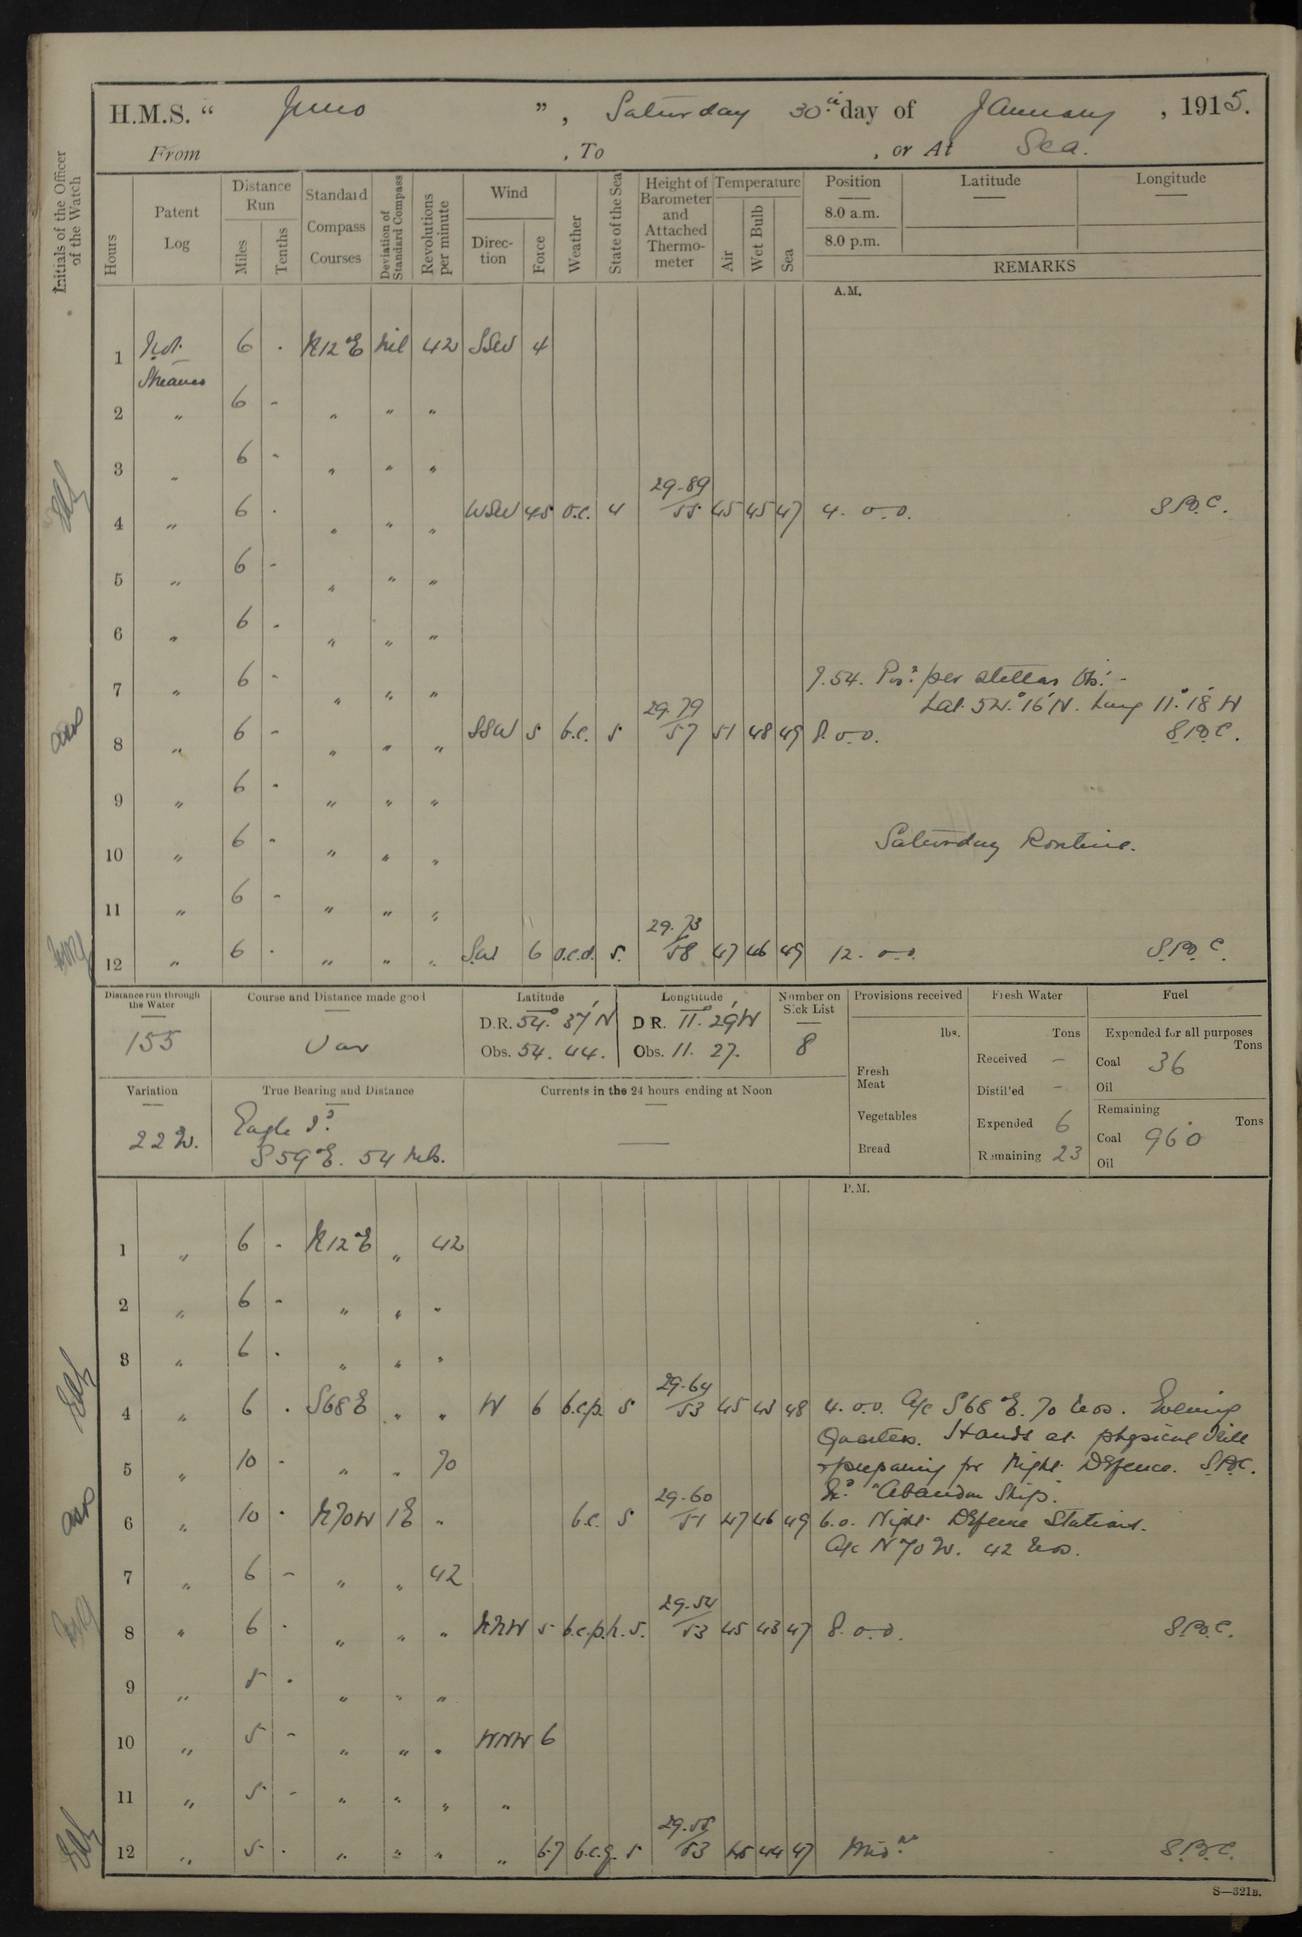 H.M.S. “ Juno ”, Saturday 30th day of January, 1915.
From , To , or At Sea.
Initials of the Officer of the Watch
Hours
Patent Log
Distance Run
Miles
Tenths
Standard Compass Courses
Deviation of Standard Compass
Revolutions per minute
Wind
Direction
Force
Weather
State of the Sea
Height of Barometer and Attached Thermometer
Temperature
Air
Wet Bulb
Sea
Position
8.0 a.m.
8.0 p.m.
Latitude
Longitude
REMARKS
A.M.
1 Not 6 . N12°E Nil 42 SSW 4
Streamed
2 " 6 - " " "
3 " 6 - " " "
29.89
4 " 6 . " " " WSW 4.5 o.c. 4 55 45 45 47 4. 0.0. S.B.C.
5 " 6 - " " "
6 " 6 - " " "
7 " 6 - " " " 7.54. Posn per stellar Obs. -
29.79 Lat. 54° 16' N. Long 11° 18' W
8 " 6 - " " " SSW 5 b.c. 5 57 51 48 49 8. 0.0. S.B.C.
9 " 6 - " " "
10 " 6 - " " " Saturday Routine.
11 " 6 - " " "
29.73
12 " 6 . " " " S.W 6 o.c.d. 5. 58 47 46 49 12. 0.0. S.B.C.
Distance run through the Water
155
Course and Distance made good
Var
Latitude
D.R. 54° 37' N
Obs. 54. 44.
Longtitude
D R. 11° 29' W
Obs. 11. 27.
Number on Sick List
8
Provisions received
lbs.
Fresh Meat
Vegetables
Bread
Fresh Water
Tons
Received -
Distil'ed -
Expended 6
Remaining 23
Fuel
Expended for all purposes
Tons
Coal 36
Oil
Remaining
Tons
Coal 960
Oil
Variation
22 W.
True Bearing and Distance
Eagle Id.
S 59°E. 54 mls.
Currents in the 24 hours ending at Noon
P.M.
1 " 6 - N12°E " 42
2 " 6 - " " "
3 " 6 . " " "
29.64
4 " 6 . S68E " " W 6 b.c.p. 5 53 45 43 48 4. 0.0. A/c S68°E. 70 revs. Evening
Quarters. Hands at physical drill
5 " 10 - " " 70 & preparing for Night Defence. S.B.C.
29.60 "Abandon Ship."
6 " 10 . N70W 1E " b.c. 5 51 47 46 49 6.0. Night Defence Stations.
A/c N 70 W. 42 revs.
7 " 6 - " " 42
29.54
8 " 6 . " " " NNW 5 b.c.p.h. 5. 53 45 43 47 8. 0.0. S.B.C.
9 " 5 . " " "
10 " 5 - " " " WNW 6
11 " 5 - " " " "
29.55
12 " 5 . " " " " 6.7 b.c.q. 5 53 45 44 47 Midt. S.B.C.
S—321B.